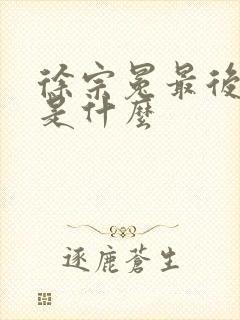 徐宗冕最後
是什麼
逐鹿蒼生